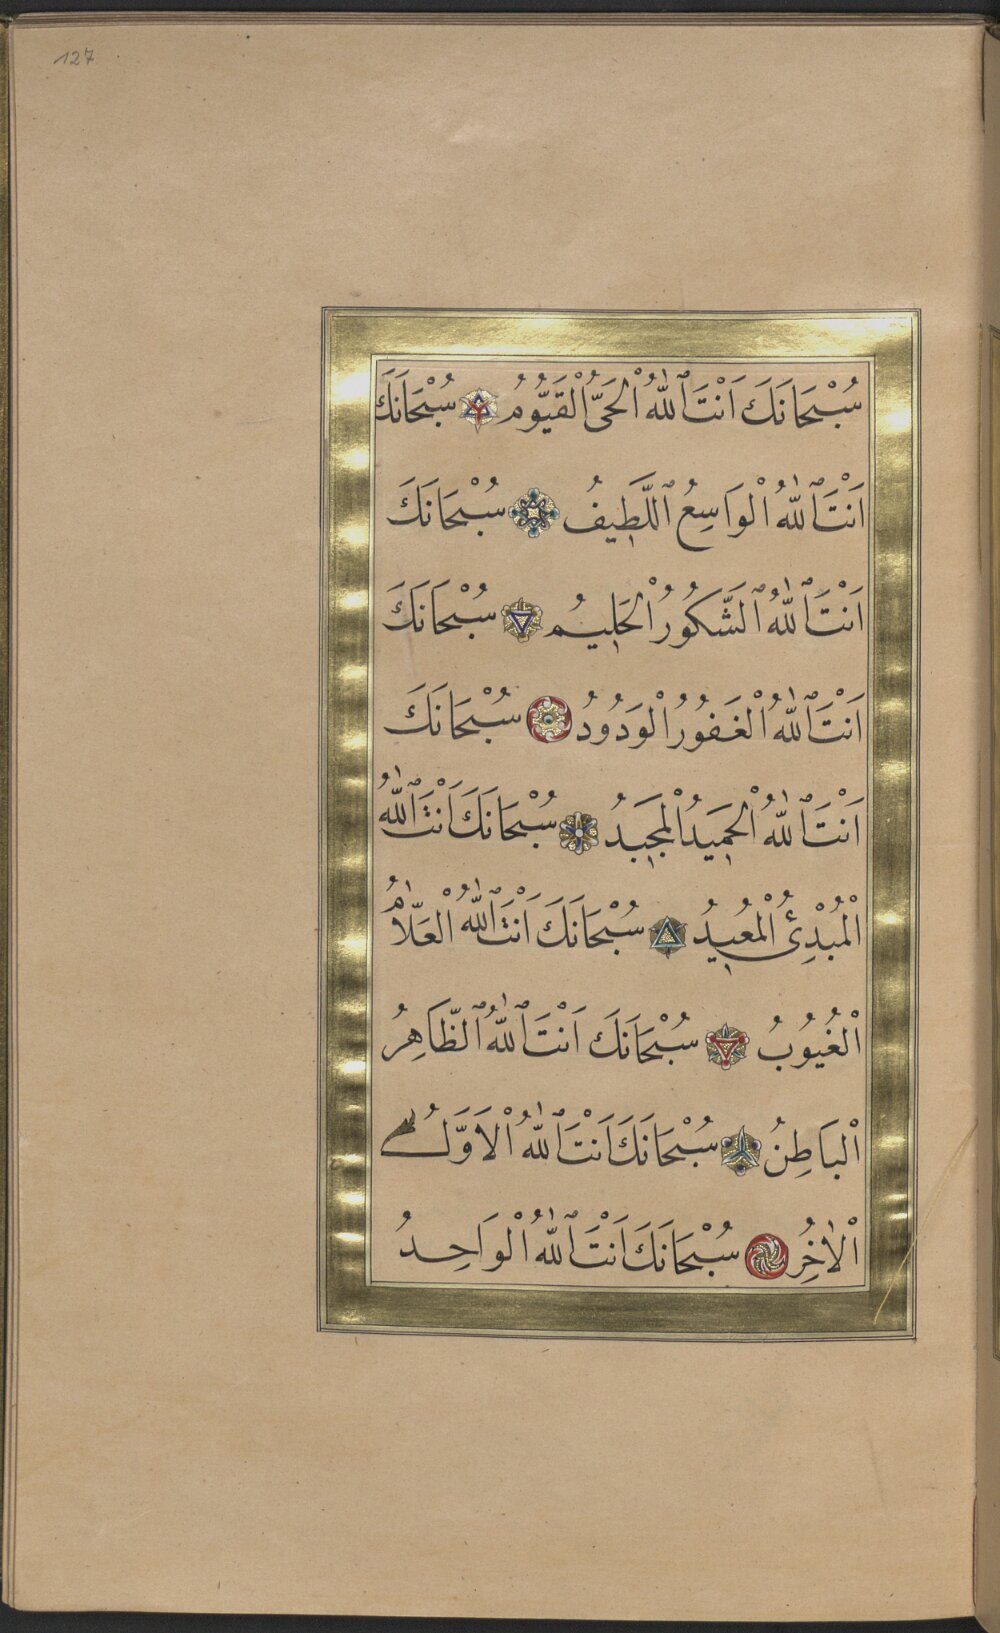 127
سُبْحَانَكَ اَنْتَ ٱللّٰهُ الْحَىُّ الْقَيُّومُ سُبْحَانَكَ
اَنْتَ ٱللّٰهُ الْوَاسِعُ ٱللَّطِيفُ سُبْحَانَكَ
اَنْتَ ٱللّٰهُ ٱلشَّكُورُ الْحَلِيمُ سُبْحَانَكَ
اَنْتَ ٱللّٰهُ الْغَفُورُ الْوَدُودُ سُبْحَانَكَ
اَنْتَ ٱللّٰهُ الْحَمِيدُ الْمَجِيدُ سُبْحَانَكَ اَنْتَ ٱللّٰهُ
الْمُبْدِئُ الْمُعِيدُ سُبْحَانَكَ اَنْتَ ٱللّٰهُ الْعَلَّامُ
الْغُيُوبُ سُبْحَانَكَ اَنْتَ ٱللّٰهُ ٱلظَّاهِرُ
الْبَاطِنُ سُبْحَانَكَ اَنْتَ ٱللّٰهُ الْاَوَّلُ
الْاٰخِرُ سُبْحَانَكَ اَنْتَ ٱللّٰهُ الْوَاحِدُ